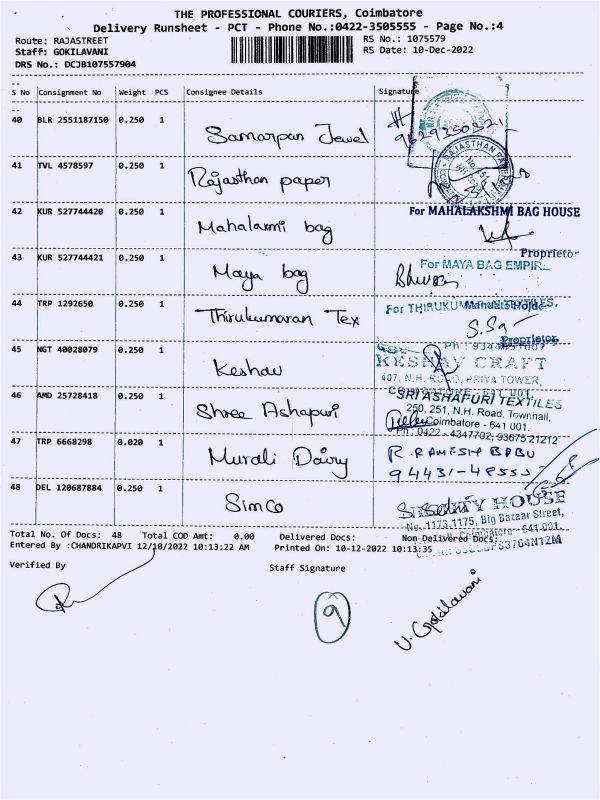 THE PROFESSIONAL COURIERS, Coimbatore
Delivery Runsheet - PCT - Phone No.:0422-3505555 - Page No.:4
Route: RAJASTREET RS No.: 1075579
Staff: GOKILAVANI RS Date: 10-Dec-2022
DRS No.: DCJB107557904
S No Consignment No Weight PCS Consignee Details Signature
40 BLR 2551187150 0.250 1 Samarpan Jewel
41 TVL 4578597 0.250 1 Rajasthan paper
42 KUR 527744420 0.250 1 Mahalaxmi bag For MAHALAKSHMI BAG HOUSE
Proprietor
43 KUR 527744421 0.250 1 Maya bag For MAYA BAG EMPIRE
44 TRP 1292650 0.250 1 Thirukumaran Tex
Proprietor
45 NGT 40028079 0.250 1 Keshav KESHAV CRAFT
407, N.H. ROAD, PRIYA TOWER,
COIMBATORE - 641 001.
46 AMD 25728418 0.250 1 Shree Ashapuri SRI ASHAPURI TEXTILES
250, 251, N.H. Road, Townhall,
Coimbatore - 641 001.
Ph : 0422 - 4347702, 93675 21212
47 TRP 6668298 0.020 1 Murali Dairy R. RAMESH BABU
48 DEL 120687884 0.250 1 Simco
No. 1173,1175, Big Bazaar Street,
Coimbatore - 641 001.
Total No. Of Docs: 48 Total COD Amt: 0.00 Delivered Docs: Non-Delivered Docs:
Entered By :CHANDRIKAPVI 12/10/2022 10:13:22 AM Printed On: 10-12-2022 10:13:35
Verified By Staff Signature
9
V. Gokilavani